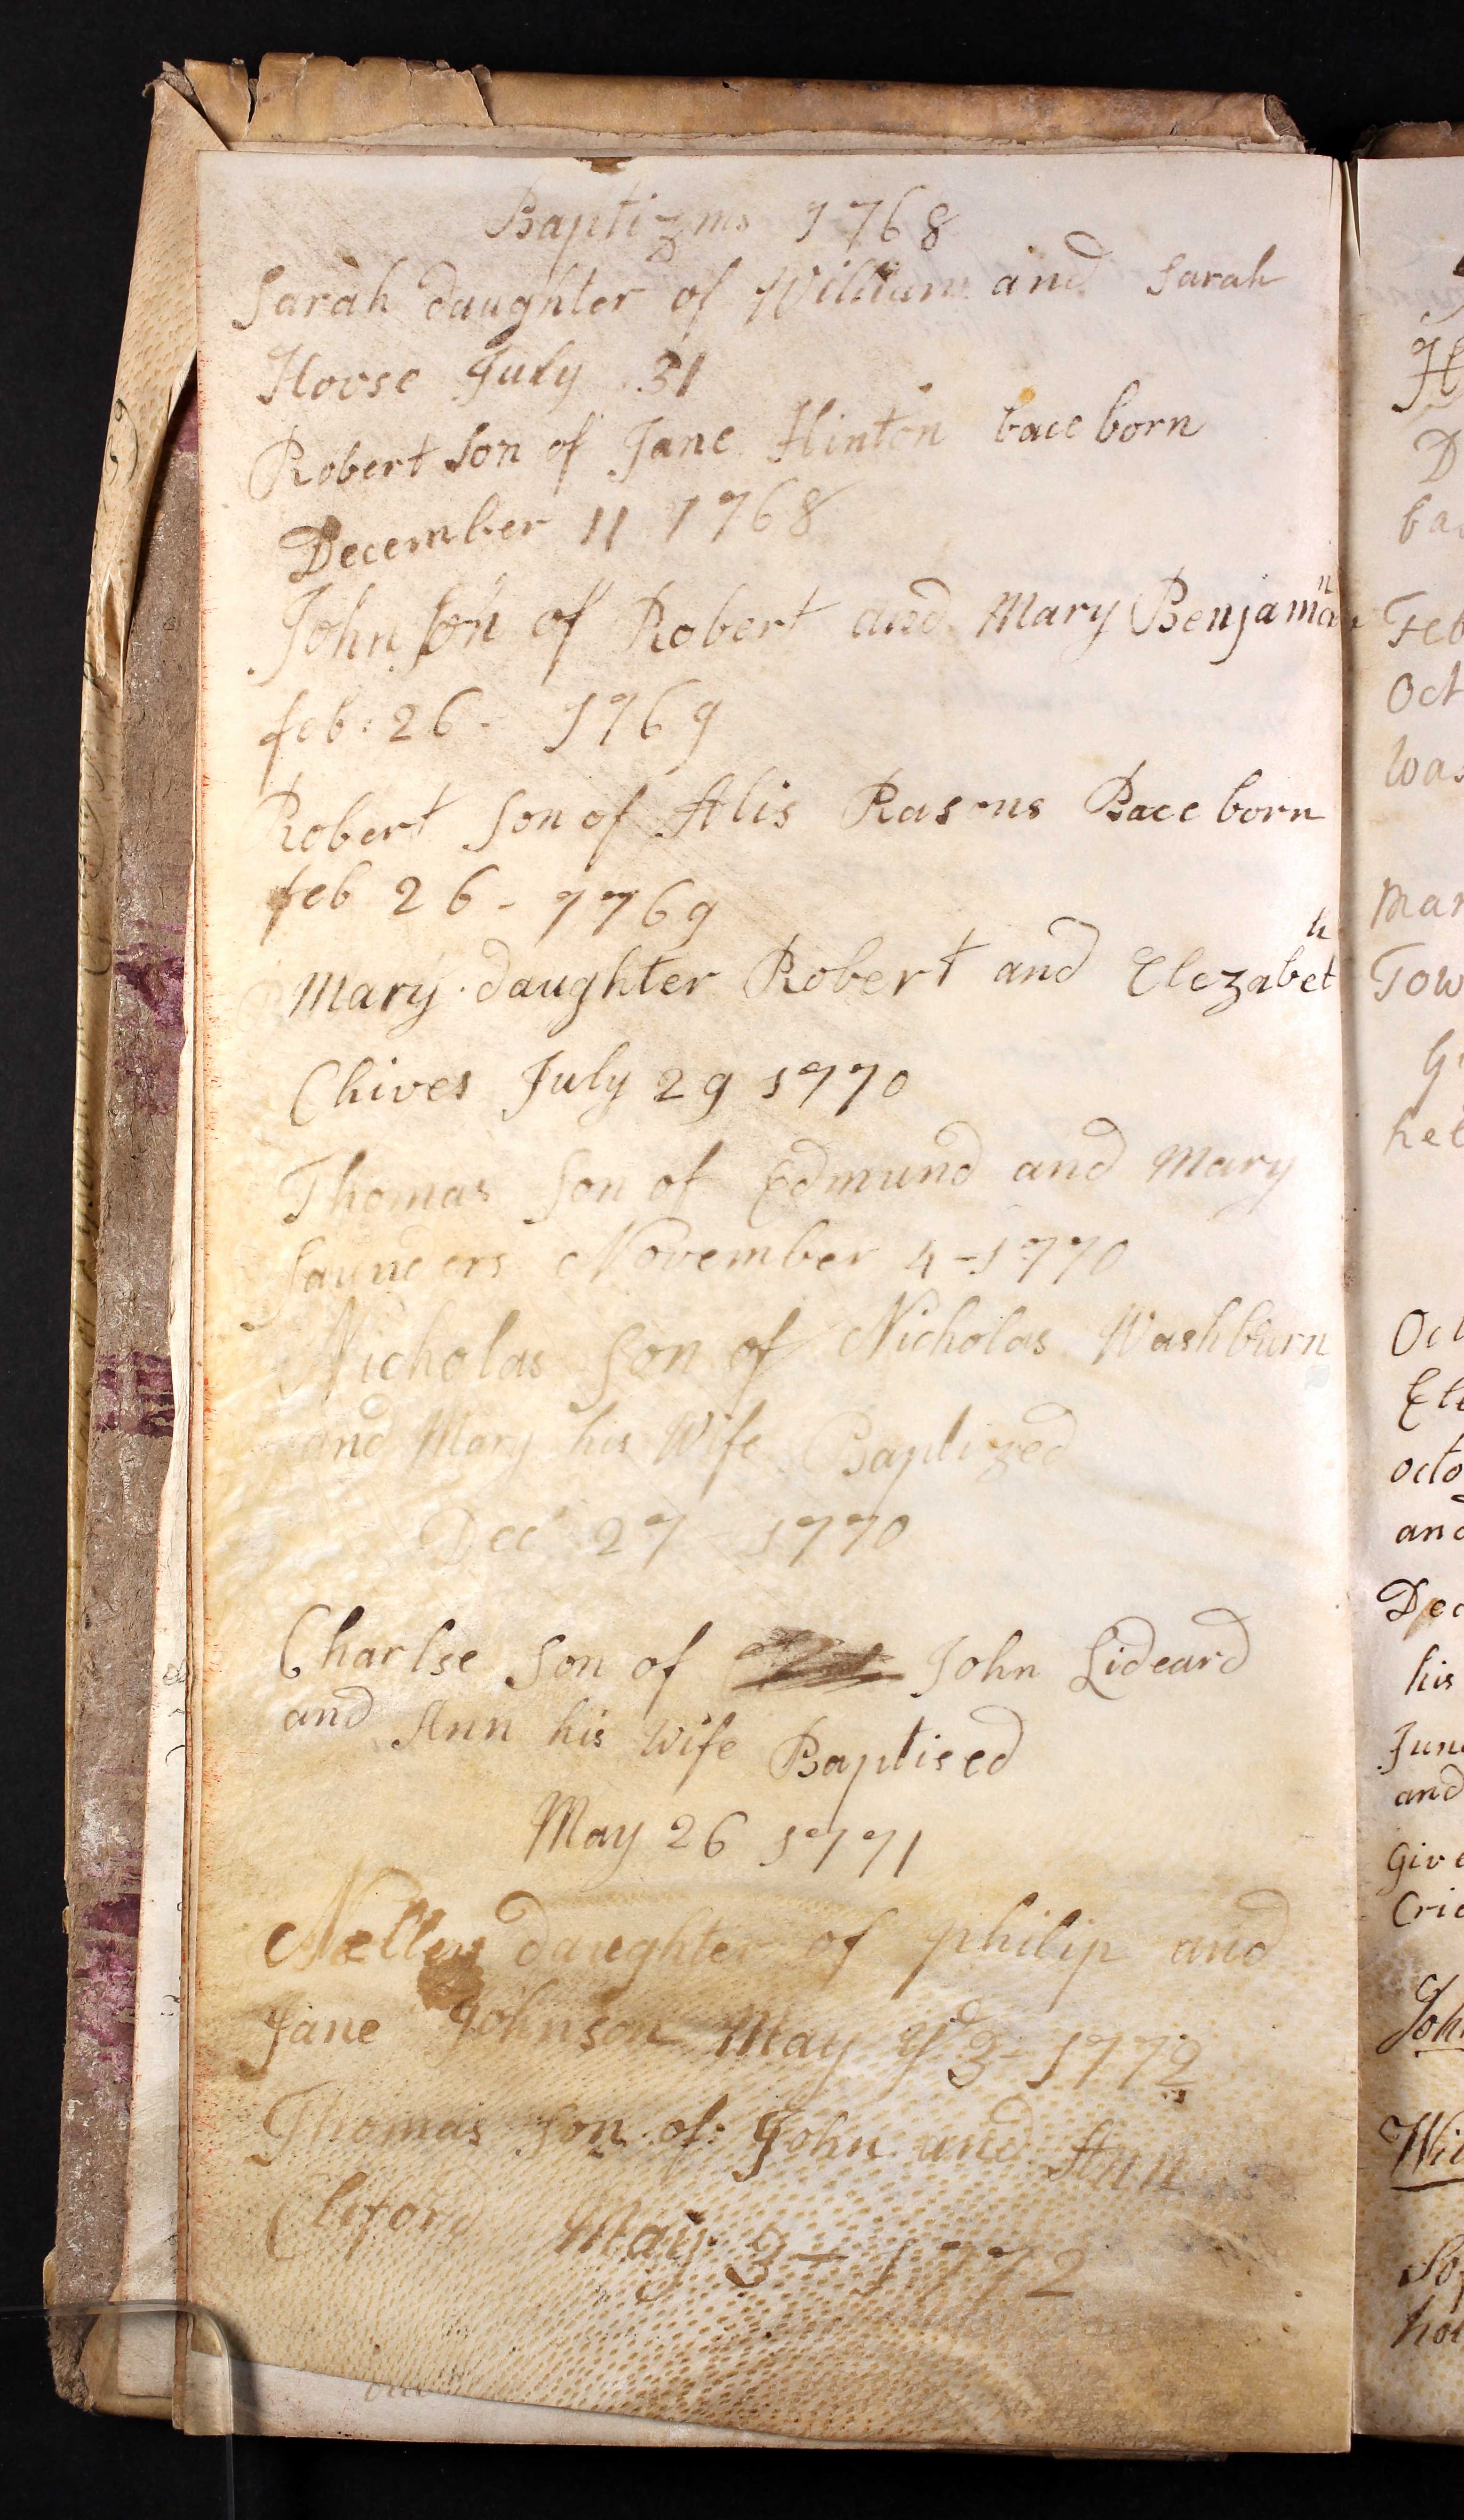 Baptizms 1768
Sarah daughter of William and Sarah
Hoose July 31
Robert Son of Jane Hinton bace born
December 11 1768
John Son of Robert and Mary Benjaman
feb: 26 - 1769
Robert Son of Alis Rasons Bace born
feb 26 - 1769
Mary daughter Robert and Elezabeth
Chives July 29 1770
Thomas Son of Edmund and Mary
Saunders November 4 - 1770
Nicholas Son of Nicholas Washburn
and Mary his Wife Baptized
Dec 27 1770
Charlse Son of John Lideard
and Ann his Wife Baptised
May 26 1771
Nelley daughter of philip and
Jane Johnson May ye 3 - 1772
Thomas Son of: John and Ann
Cliford May 3 - 1772
H
D
ba
Feb
Oct
was
Mar
Tow
G
hel
Oct
Ele
octo
and
Dec
his
June
and
Give
Cric
Joh
Wil
So
hol